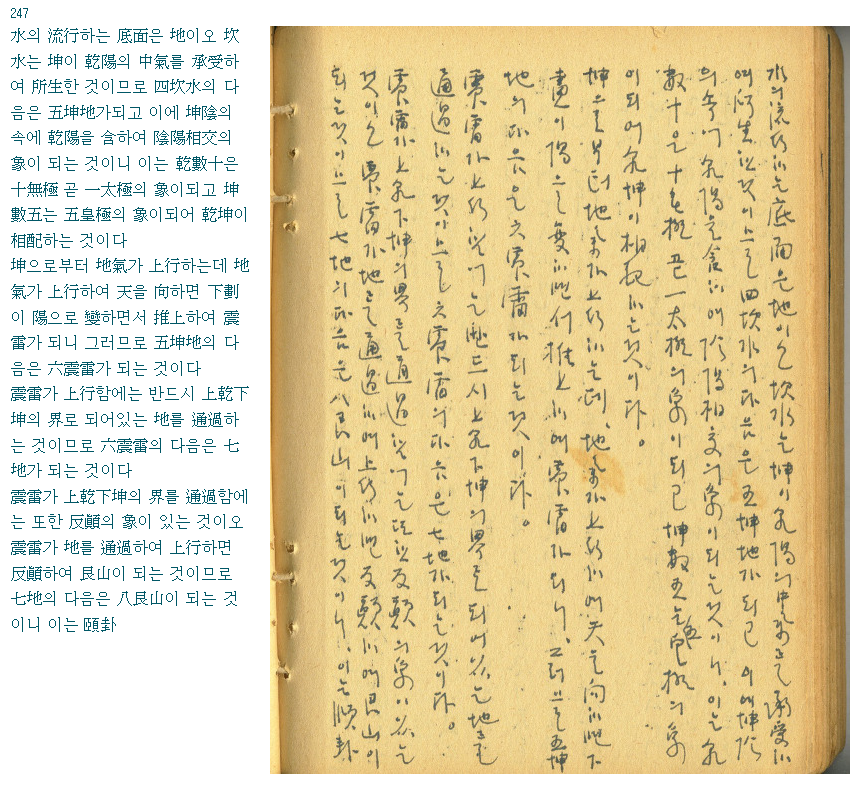 247
水의 流行하는 底面은 地이오 坎
水는 坤이 乾陽의 中氣를 承受하
여 所生한 것이므로 四坎水의 다
음은 五坤地가되고 이에 坤陰의
속에 乾陽을 含하여 陰陽相交의
象이 되는 것이니 이는 乾數十은
十無極 곧 一太極의 象이되고 坤
數五는 五皇極의 象이되어 乾坤이
相配하는 것이다
坤으로부터 地氣가 上行하는데 地
氣가 上行하여 天을 向하면 下劃
이 陽으로 變하면서 推上하여 震
雷가 되니 그러므로 五坤地의 다
음은 六震雷가 되는 것이다
震雷가 上行함에는 반드시 上乾下
坤의 界로 되어있는 地를 通過하
는 것이므로 六震雷의 다음은 七
地가 되는 것이다
震雷가 上乾下坤의 界를 通過함에
는 또한 反顚의 象이 있는 것이오
震雷가 地를 通過하여 上行하면
反顚하여 艮山이 되는 것이므로
七地의 다음은 八艮山이 되는 것
이니 이는 頤卦
水의 流行하는 底面은 地이오 坎水는 坤이 乾陽의 中氣를 承受하
여 所生한 것이므로 四坎水의 다음은 五坤地가 되고 이에 坤陰
의 속에 乾陽을 含하여 陰陽相交의 象이 되는 것이니, 이는 乾
數十은 十無極 곧 一太極의 象이 되고 坤數五는 五皇極의 象
이 되어 乾坤이 相配하는 것이다。
坤으로부터 地氣가 上行하는데, 地氣가 上行하여 天을 向하면 下
畫이 陽으로 變하면서 推上하여 震雷가 되니, 그러므로 五坤
地의 다음은 六震雷가 되는 것이다。
震雷가 上行함에는 반드시 上乾下坤의 界로 되어있는 地를
通過하는 것이므로 六震雷의 다음은 七地가 되는 것이다。
震雷가 上乾下坤의 界를 通過함에는 또한 反顚의 象이 있는
것이오 震雷가 地를 通過하여 上行하면 反顚하여 艮山이
되는 것이므로 七地의 다음은 八艮山이 되는 것이니, 이는 頤卦